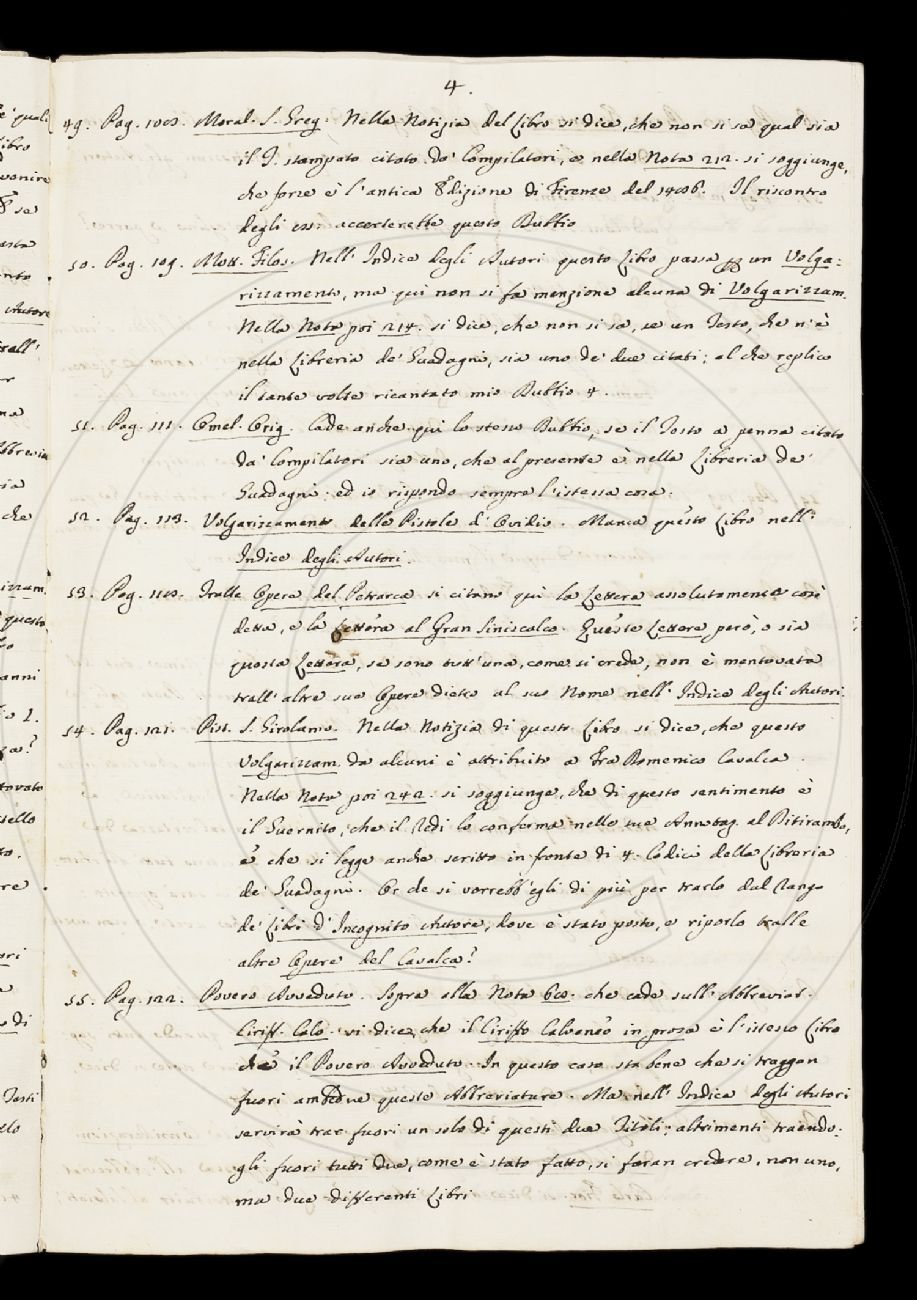 4.
49. Pag. 108. Moral. S. Greg. Nella Notizia del Libro si dice, che non si sa qual sia
il T. stampato citato da' Compilatori, e nella Nota 212. si soggiunge,
che forse è l'antica Edizione di Firenze del 1486. Il riscontro
degli esempj accerterebbe questo Dubbio
50. Pag. 109. Mott. Filos. Nell' Indice degli Autori questo Libro passa p un Volga:
rizzamento, ma qui non si fa menzione alcuna di Volgarizzam.
Nella Nota poi 214. si dice, che non si sa, se un Testo, che n'è
nella Libreria de' Guadagni, sia uno de' due citati; al che replico
il tante volte ricantato mio Dubbio 4.
51. Pag. 111. Omel. Orig. Cade anche qui lo stesso Dubbio, se il Testo a penna citato
da' Compilatori sia uno, che al presente è nella Libreria de'
Guadagni: ed io rispondo sempre l'istessa cosa.
52. Pag. 113. Volgarizzamento delle Pistole d'Ovidio. Manca questo Libro nell'
Indice degli Autori.
53. Pag. 118. Tralle Opere del Petrarca si citano quì la Lettera assolutamente così
detta, e la Lettera al Gran Siniscalco. Queste Lettere però, o sia
questa Lettera, se sono tutt'una, come si crede, non è mentovata
trall' altre sue Opere dietro al suo Nome nell' Indice degli Autori.
54. Pag. 121. Pist. S. Girolamo. Nella Notizia di questo Libro si dice, che questo
Volgarizzam. da alcuni è attribuito a Fra Domenico Cavalca.
Nella Nota poi 242. si soggiunge, che di questo sentimento è
il Guernito, che il Redi lo conferma nelle sue Annotaz. al Ditirambo,
e che si legge anche scritto in fronte di 4. Codici della Libreria
de' Guadagni. Or che si vorrebb'egli di più per trarlo dal Rango
de' Libri d'Incognito Autore, dove è stato posto, e riporlo tralle
altre Opere del Cavalca?
55. Pag. 122. Povero Avveduto. Sopra alla Nota 68. che cade sull' Abbreviat.
Ciriff. Calv. vi dice, che il Ciriffo Calvaneo in prosa è l'istesso Libro
che il Povero Avveduto. In questo caso sta bene che si traggon
fuori ambedue queste Abbreviature. Ma nell' Indice degli Autori
servirà trar fuori un solo di questi due Titoli; altrimenti traendo:
gli fuori tutti due, come è stato fatto, si faran credere, non uno,
ma due differenti Libri